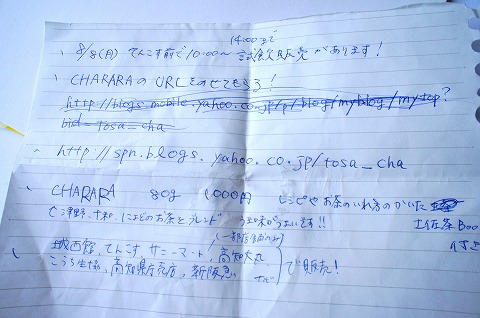 14:00まで
8/8(月) てんこす前で10:00〜 試飲販売があります！
CHARARAのURLをのせてもらう！
http://blogs.mobile.yahoo.co.jp/p/blog/myblog/mytop?
bid=tosa_cha
http://spn.blogs.yahoo.co.jp/tosa_cha
CHARARA 80g 1,000円 レシピやお茶のいれ方のかいた
土佐茶Boo
津野、
のお茶をブレンド
(一部店舗のみ)
城西館、てんこす、サニーマート、高知大丸
こうち生協、高知県庁売店、新阪急
など
で販売！